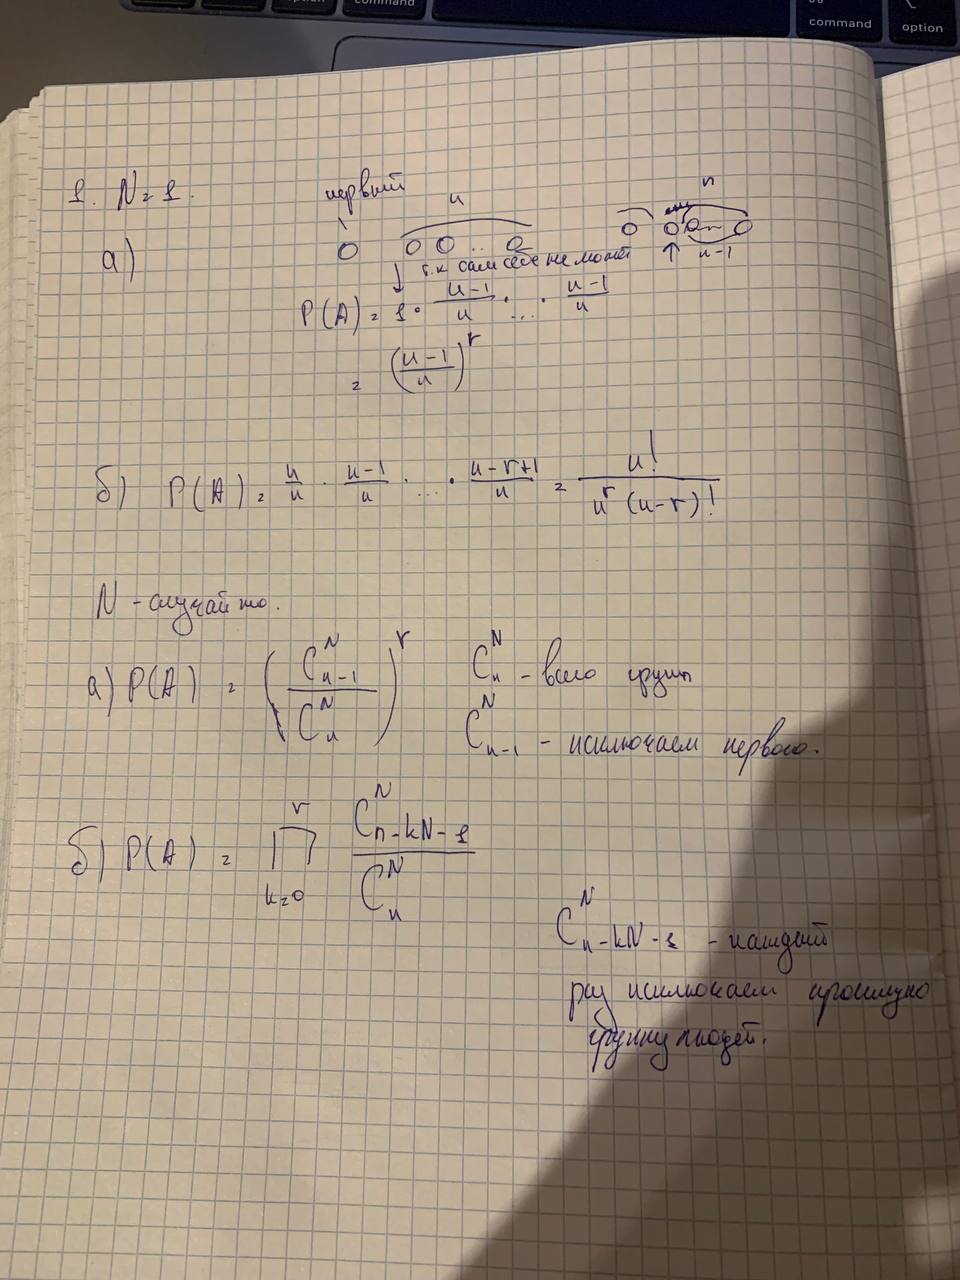 command
option
command
option
1. N=1.
первый
n
n
а)
т.к сам себе не может
n-1
P(A) = 1 · (n-1)/n · ... · (n-1)/n
= ((n-1)/n)^r
б) P(A) = n/n · (n-1)/n · ... · (n-r+1)/n = n!/(n^r (n-r)!)
N - случайно.
а) P(A) = (C_{n-1}^N / C_n^N)^r
C_n^N - всего групп
C_{n-1}^N - исключаем первого.
б) P(A) = ∏_{k=0}^r C_{n-kN-1}^N / C_n^N
C_{n-kN-1}^N - каждый
раз исключаем прошлую
группу людей.